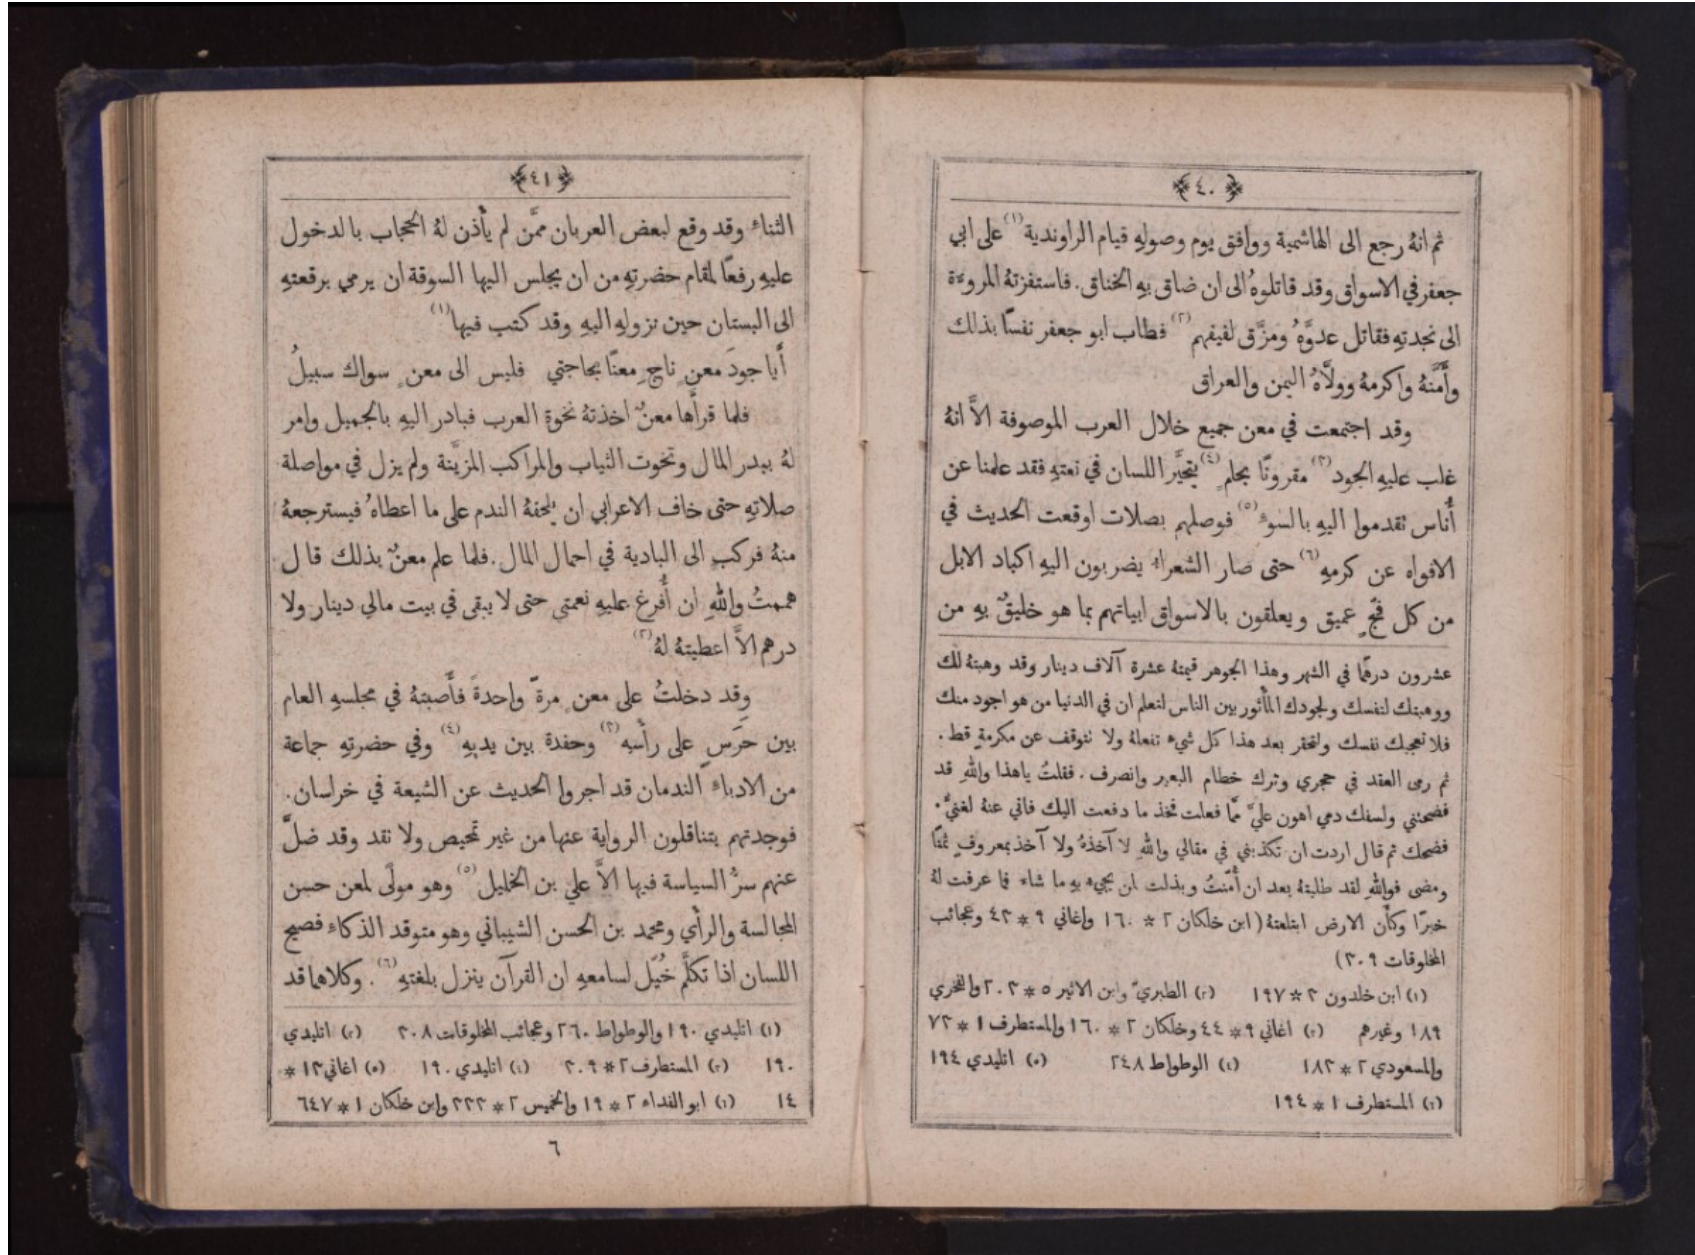 ﴿٤٠﴾
ثم انهُ رجع الى الهاشمية ووافق يوم وصولهِ قيام الراوندية (١) على ابي
جعفر في الاسواق وقد قاتلوهُ الى ان ضاق بهِ الخناق. فاستفزتهُ المروءة
الى نجدتهِ فقاتل عدوَّهُ ومزَّق لفيفهم (٢) فطاب ابو جعفر نفسًا بذلك
وأَمَّنهُ واكرمهُ وولَّاهُ اليمن والعراق
وقد اجتمعت في معن جميع خلال العرب الموصوفة الاَّ انهُ
غلب عليهِ الجود (٣) مقرونًا بحلمٍ (٤) يتحيَّر اللسان في نعتهِ فقد علمنا عن
أُناس تقدموا اليهِ بالسوءِ (٥) فوصلهم بصلات اوقعت الحديث في
الافواه عن كرمهِ (٦) حتى صار الشعراءُ يضربون اليهِ اكباد الابل
من كل فجٍّ عميق ويعلقون بالاسواق ابياتهم بما هو خليقٌ بهِ من
عشرون درهمًا في الشهر وهذا الجوهر قيمتهُ عشرة آلاف دينار وقد وهبتهُ لك
ووهبتك لنفسك ولجودك المأثور بين الناس لتعلم ان في الدنيا من هو اجود منك
فلا تعجبك نفسك ولتحقر بعد هذا كل شيءٍ تفعلهُ ولا تتوقف عن مكرمةٍ قط.
ثم رمى العقد في حجري وترك خطام البعير وانصرف. فقلتُ ياهذا واللهِ قد
فضحتني ولسفك دمي اهون عليَّ ممَّا فعلت فخذ ما دفعت اليك فاني عنهُ لغنيٌّ.
فضحك ثم قال اردت ان تكذبني في مقالي واللهِ لا آخذهُ ولا آخذ بمعروفٍ ثمنًا
ومضى فواللهِ لقد طلبتهُ بعد ان أُمّنتُ وبذلت لمن يجيءُ بهِ ما شاء فما عرفت لهُ
خبرًا وكأَن الارض ابتلعتهُ (ابن خلكان ٢ * ١٦٠ واغاني ٩ * ٤٣ وعجائب
المخلوقات ٣٠٩)
(١) ابن خلدون ٣ * ١٩٧ (٢) الطبريّ وابن الاثير ٥ * ٢٠٣ والفخري
١٨٩ وغيرهم (٣) اغاني ٩ * ٤٤ وخلكان ٢ * ١٦٠ والمستطرف ١ * ٧٣
والمسعودي ٢ * ١٨٣ (٤) الوطواط ٢٤٨ (٥) اتليدي ١٩٤
(٦) المستطرف ١ * ١٩٤
﴿٤١﴾
الثناءِ وقد وقع لبعض العربان ممَّن لم يأذن لهُ الحجاب بالدخول
عليهِ رفعًا لمقام حضرتهِ من ان يجلس اليها السوقة ان يرمي برقعتهِ
الى البستان حين نزولهِ اليهِ وقد كتب فيها (١)
أَيا جودَ معنٍ ناجِ معنًا بحاجتي فليس الى معنٍ سواك سبيلُ
فلما قرأَها معنٌ اخذتهُ نخوة العرب فبادر اليهِ بالجميل وامر
لهُ ببدر المال وتخوت الثياب والمراكب المزيَّنة ولم يزل في مواصلة
صلاتهِ حتى خاف الاعرابي ان يلحقهُ الندم على ما اعطاهُ فيسترجعهُ
منهُ فركب الى البادية في احمال المال. فلما علم معنٌ بذلك قال
هممتُ واللهِ ان أُفرغ عليهِ نعمتي حتى لا يبقى في بيت مالي دينار ولا
درهم الاَّ اعطيتهُ لهُ (٢)
وقد دخلتُ على معنٍ مرةً واحدةً فأَصبتهُ في مجلسهِ العام
بين حَرَسٍ على رأسهِ (٣) وحفدة بين يديهِ (٤) وفي حضرتهِ جماعة
من الادباءِ الندمان قد اجروا الحديث عن الشيعة في خراسان.
فوجدتهم يتناقلون الرواية عنها من غير تمحيص ولا نقد وقد ضلَّ
عنهم سرُّ السياسة فيها الاَّ علي بن الخليل (٥) وهو مولًى لمعن حسن
المجالسة والرأي ومحمد بن الحسن الشيباني وهو متوقد الذكاءِ فصيح
اللسان اذا تكلَّم خُيِّل لسامعهِ ان القرآن ينزل بلغتهِ (٦). وكلاهما قد
(١) اتليدي ١٩٠ والوطواط ٢٦٠ وعجائب المخلوقات ٣٠٨ (٢) اتليدي
١٩٠ (٣) المستطرف ٢ * ٣٠٩ (٤) اتليدي ١٩٠ (٥) اغاني ١٣ *
١٤ (٦) ابو الفداء ٢ * ١٩ والخميس ٢ * ٣٣٣ وابن خلكان ١ * ٦٤٧
٦